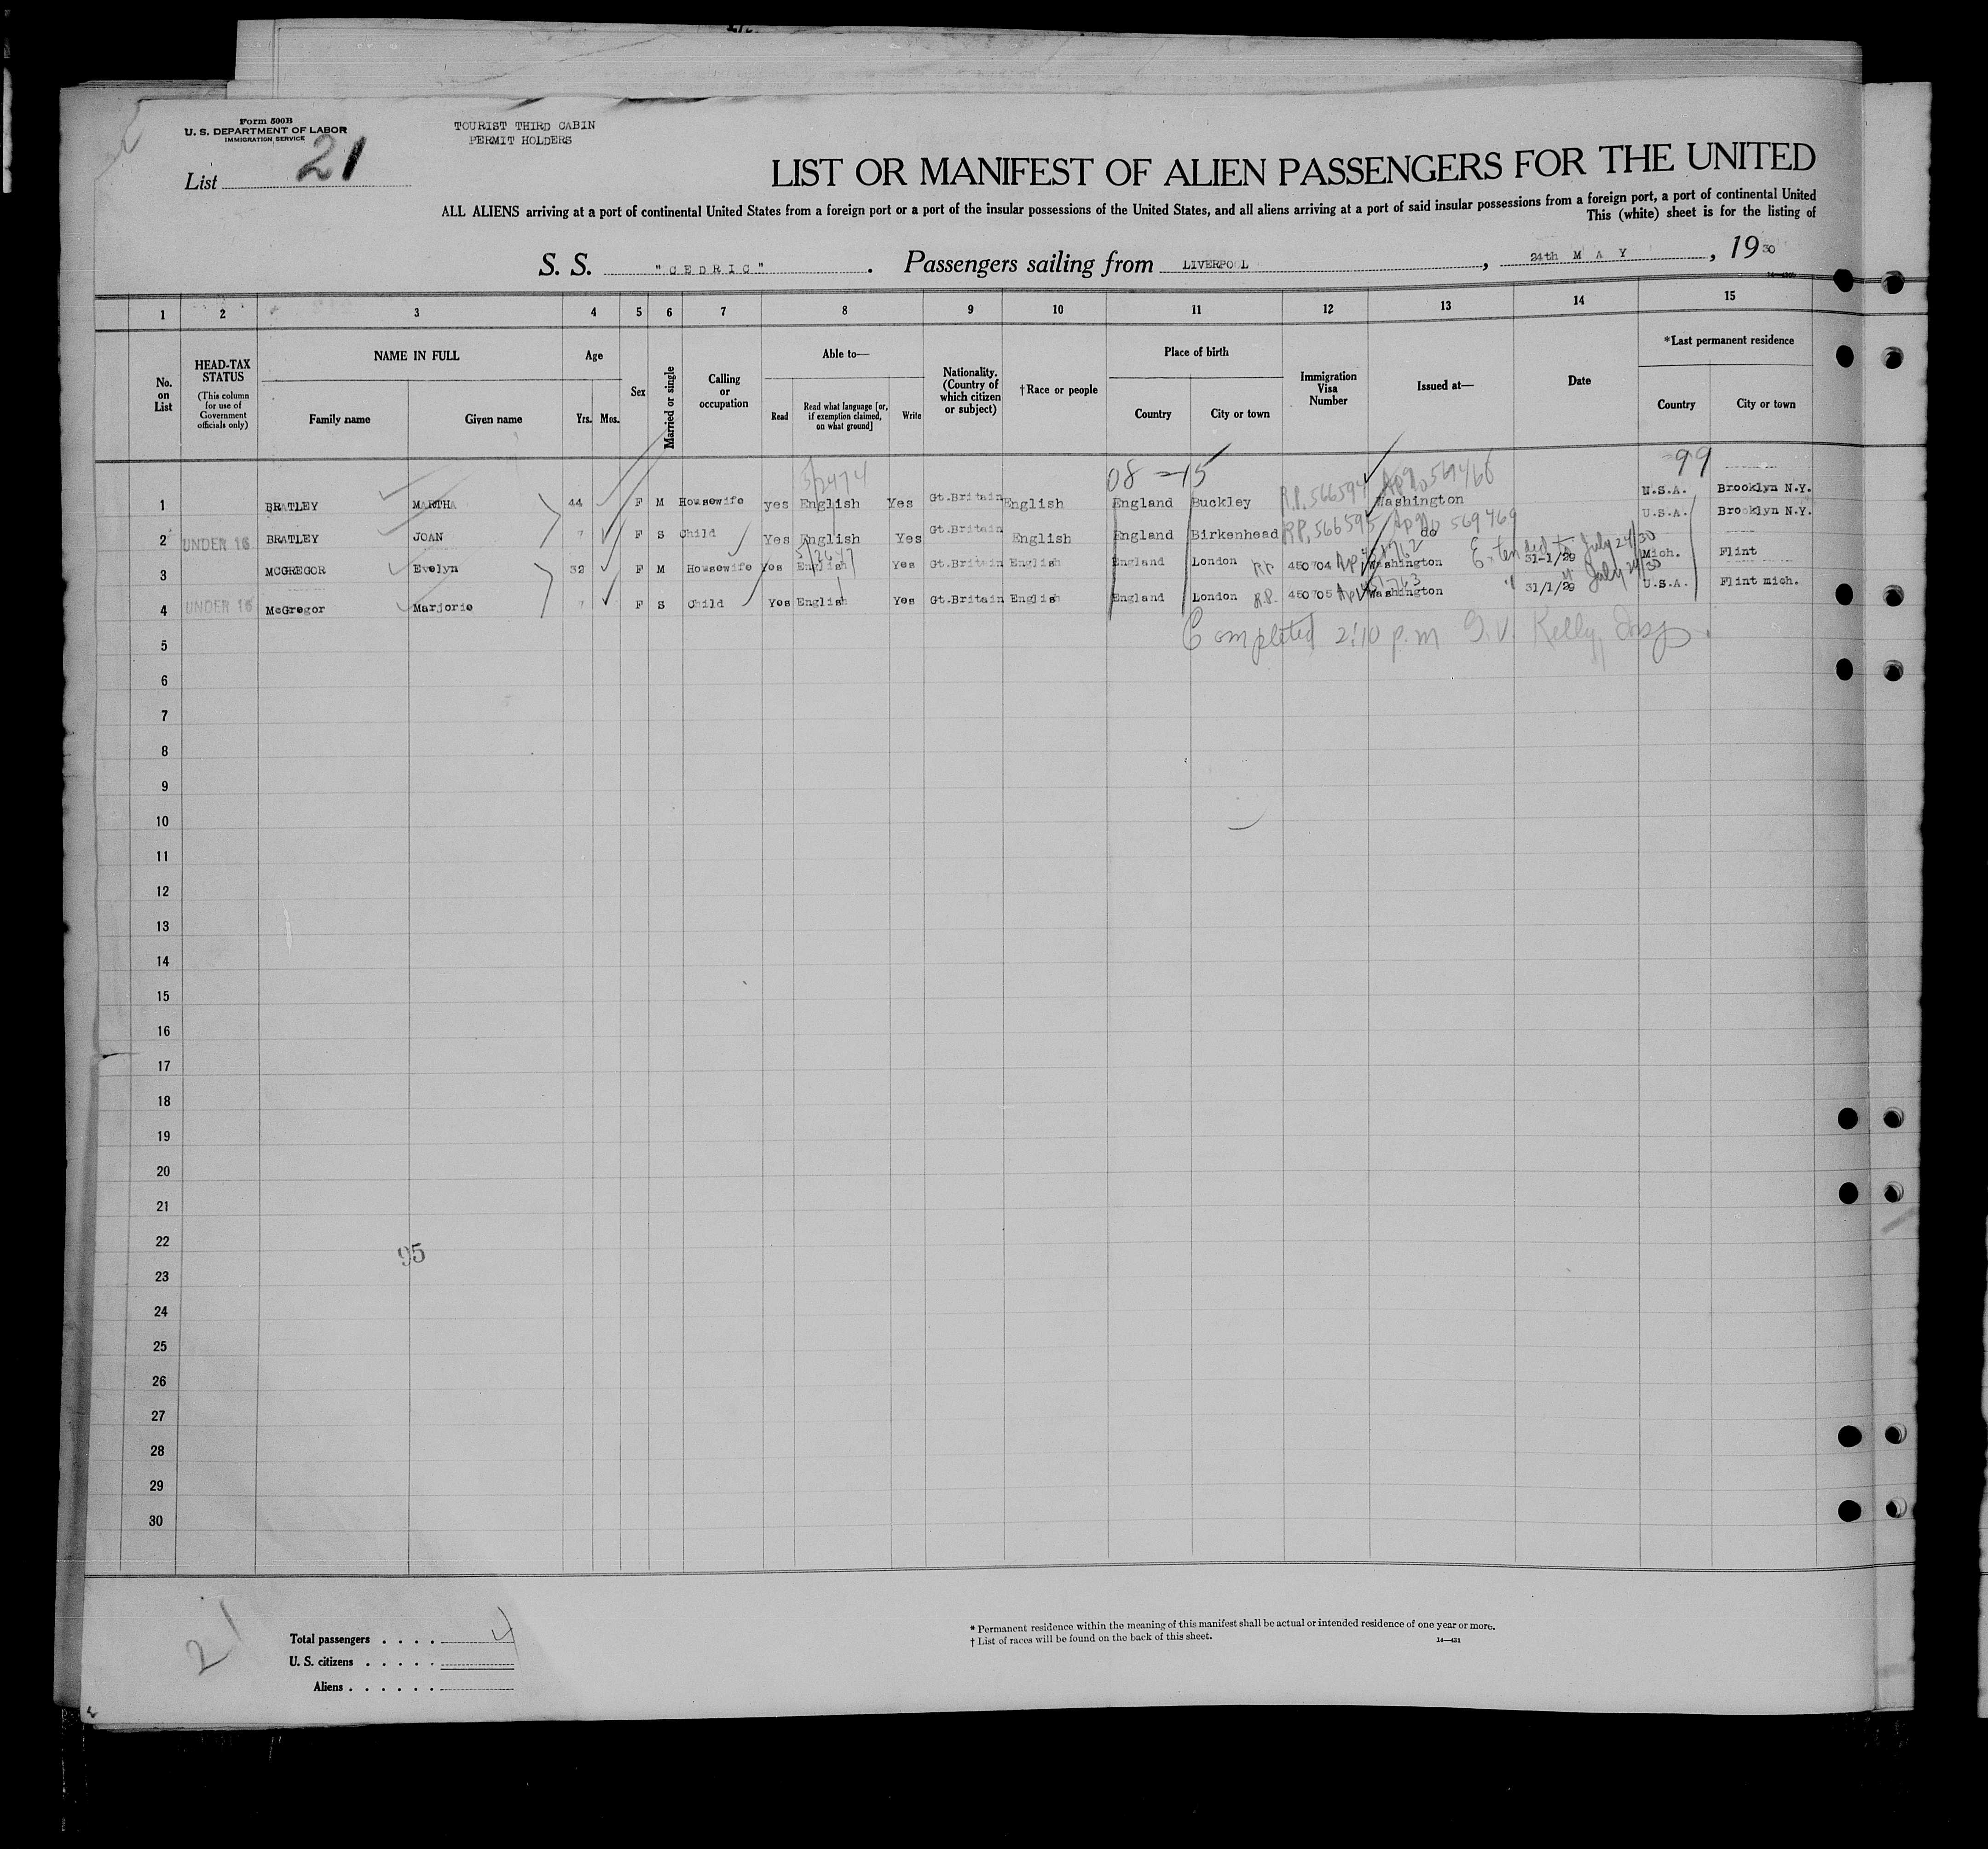 Form 500B
U. S. DEPARTMENT OF LABOR
IMMIGRATION SERVICE
TOURIST THIRD CABIN
PERMIT HOLDERS
List 21
LIST OR MANIFEST OF ALIEN PASSENGERS FOR THE UNITED
ALL ALIENS arriving at a port of continental United States from a foreign port or a port of the insular possessions of the United States, and all aliens arriving at a port of said insular possessions from a foreign port, a port of continental United
This (white) sheet is for the listing of
S. S. "CEDRIC". Passengers sailing from LIVERPOOL, 24th MAY, 1930
1 2 3 4 5 6 7 8 9 10 11 12 13 14 15
No. on List
HEAD-TAX STATUS
(This column for use of Government officials only)
NAME IN FULL
Family name Given name
Age
Yrs. Mos.
Sex
Married or single
Calling or occupation
Able to—
Read
Read what language [or, if exemption claimed, on what ground]
Write
Nationality. (Country of which citizen or subject)
†Race or people
Place of birth
Country City or town
Immigration Visa Number
Issued at—
Date
*Last permanent residence
Country City or town
5/2474 08 =15 99
1 BRATLEY MARTHA 44 F M Housewife yes English Yes Gt.Britain English England Buckley R.P. 566594 Washington U.S.A. Brooklyn N.Y.
2 UNDER 16 BRATLEY JOAN 7 F S Child Yes English Yes Gt.Britain English England Birkenhead R.P. 566595 569469 do U.S.A. Brooklyn N.Y.
Extended to July 24/30
3 MCGREGOR Evelyn 32 F M Housewife Yes English Yes Gt.Britain English England London R.P. 450704 Washington 31-1/29 Mich. Flint
" " July 24/30
4 UNDER 16 McGregor Marjorie 7 F S Child Yes English Yes Gt.Britain English England London R.P. 450705 Washington 31/1/29 U.S.A. Flint mich.
Completed 2:10 p.m Kelly, Insp.
5
6
7
8
9
10
11
12
13
14
15
16
17
18
19
20
21
22
95
23
24
25
26
27
28
29
30
21
Total passengers . . . . 4
U. S. citizens . . . . .
Aliens . . . . . .
* Permanent residence within the meaning of this manifest shall be actual or intended residence of one year or more.
† List of races will be found on the back of this sheet.
14—421